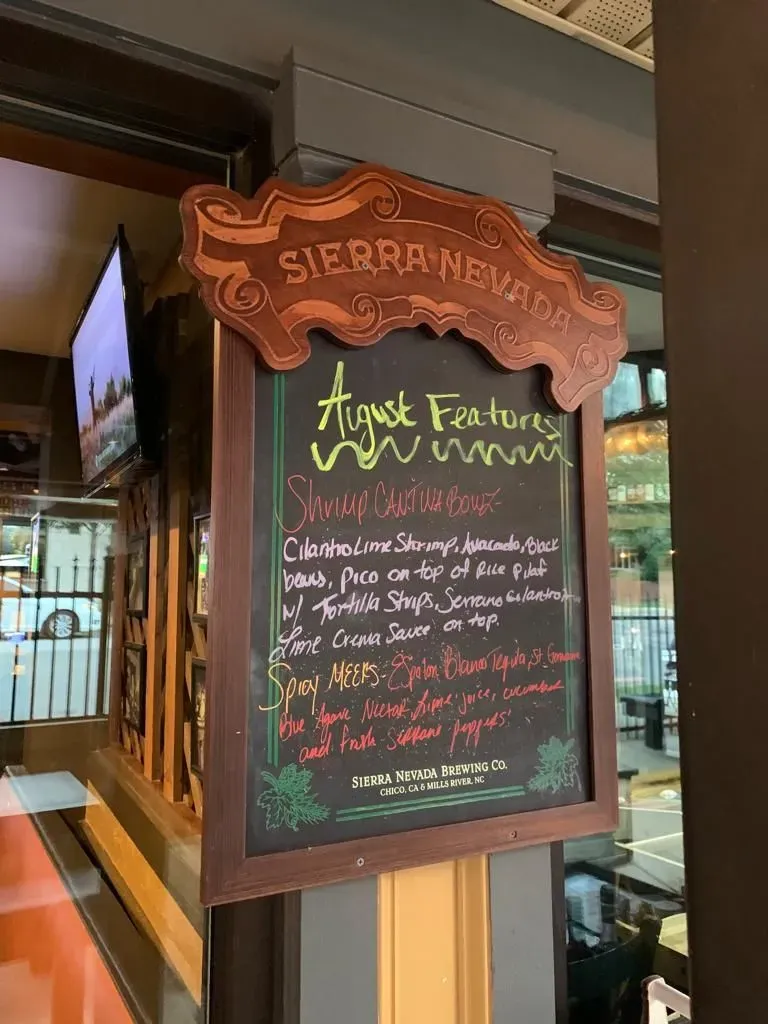 SIERRA NEVADA
August Features
Shrimp CANTINA BOWL-
Cilantro Lime Shrimp, Avacado, Black
beans, Pico on top of Rice pilaf
w/ Tortilla Strips, Serrano Cilantro
Lime Crema Sauce on top.
Spicy MEEKS- Espolon Blanco Tequila, St. Germaine
Blue Agave Nectar, Lime juice, cucumber
and fresh Serrano peppers
SIERRA NEVADA BREWING CO.
CHICO, CA & MILLS RIVER, NC